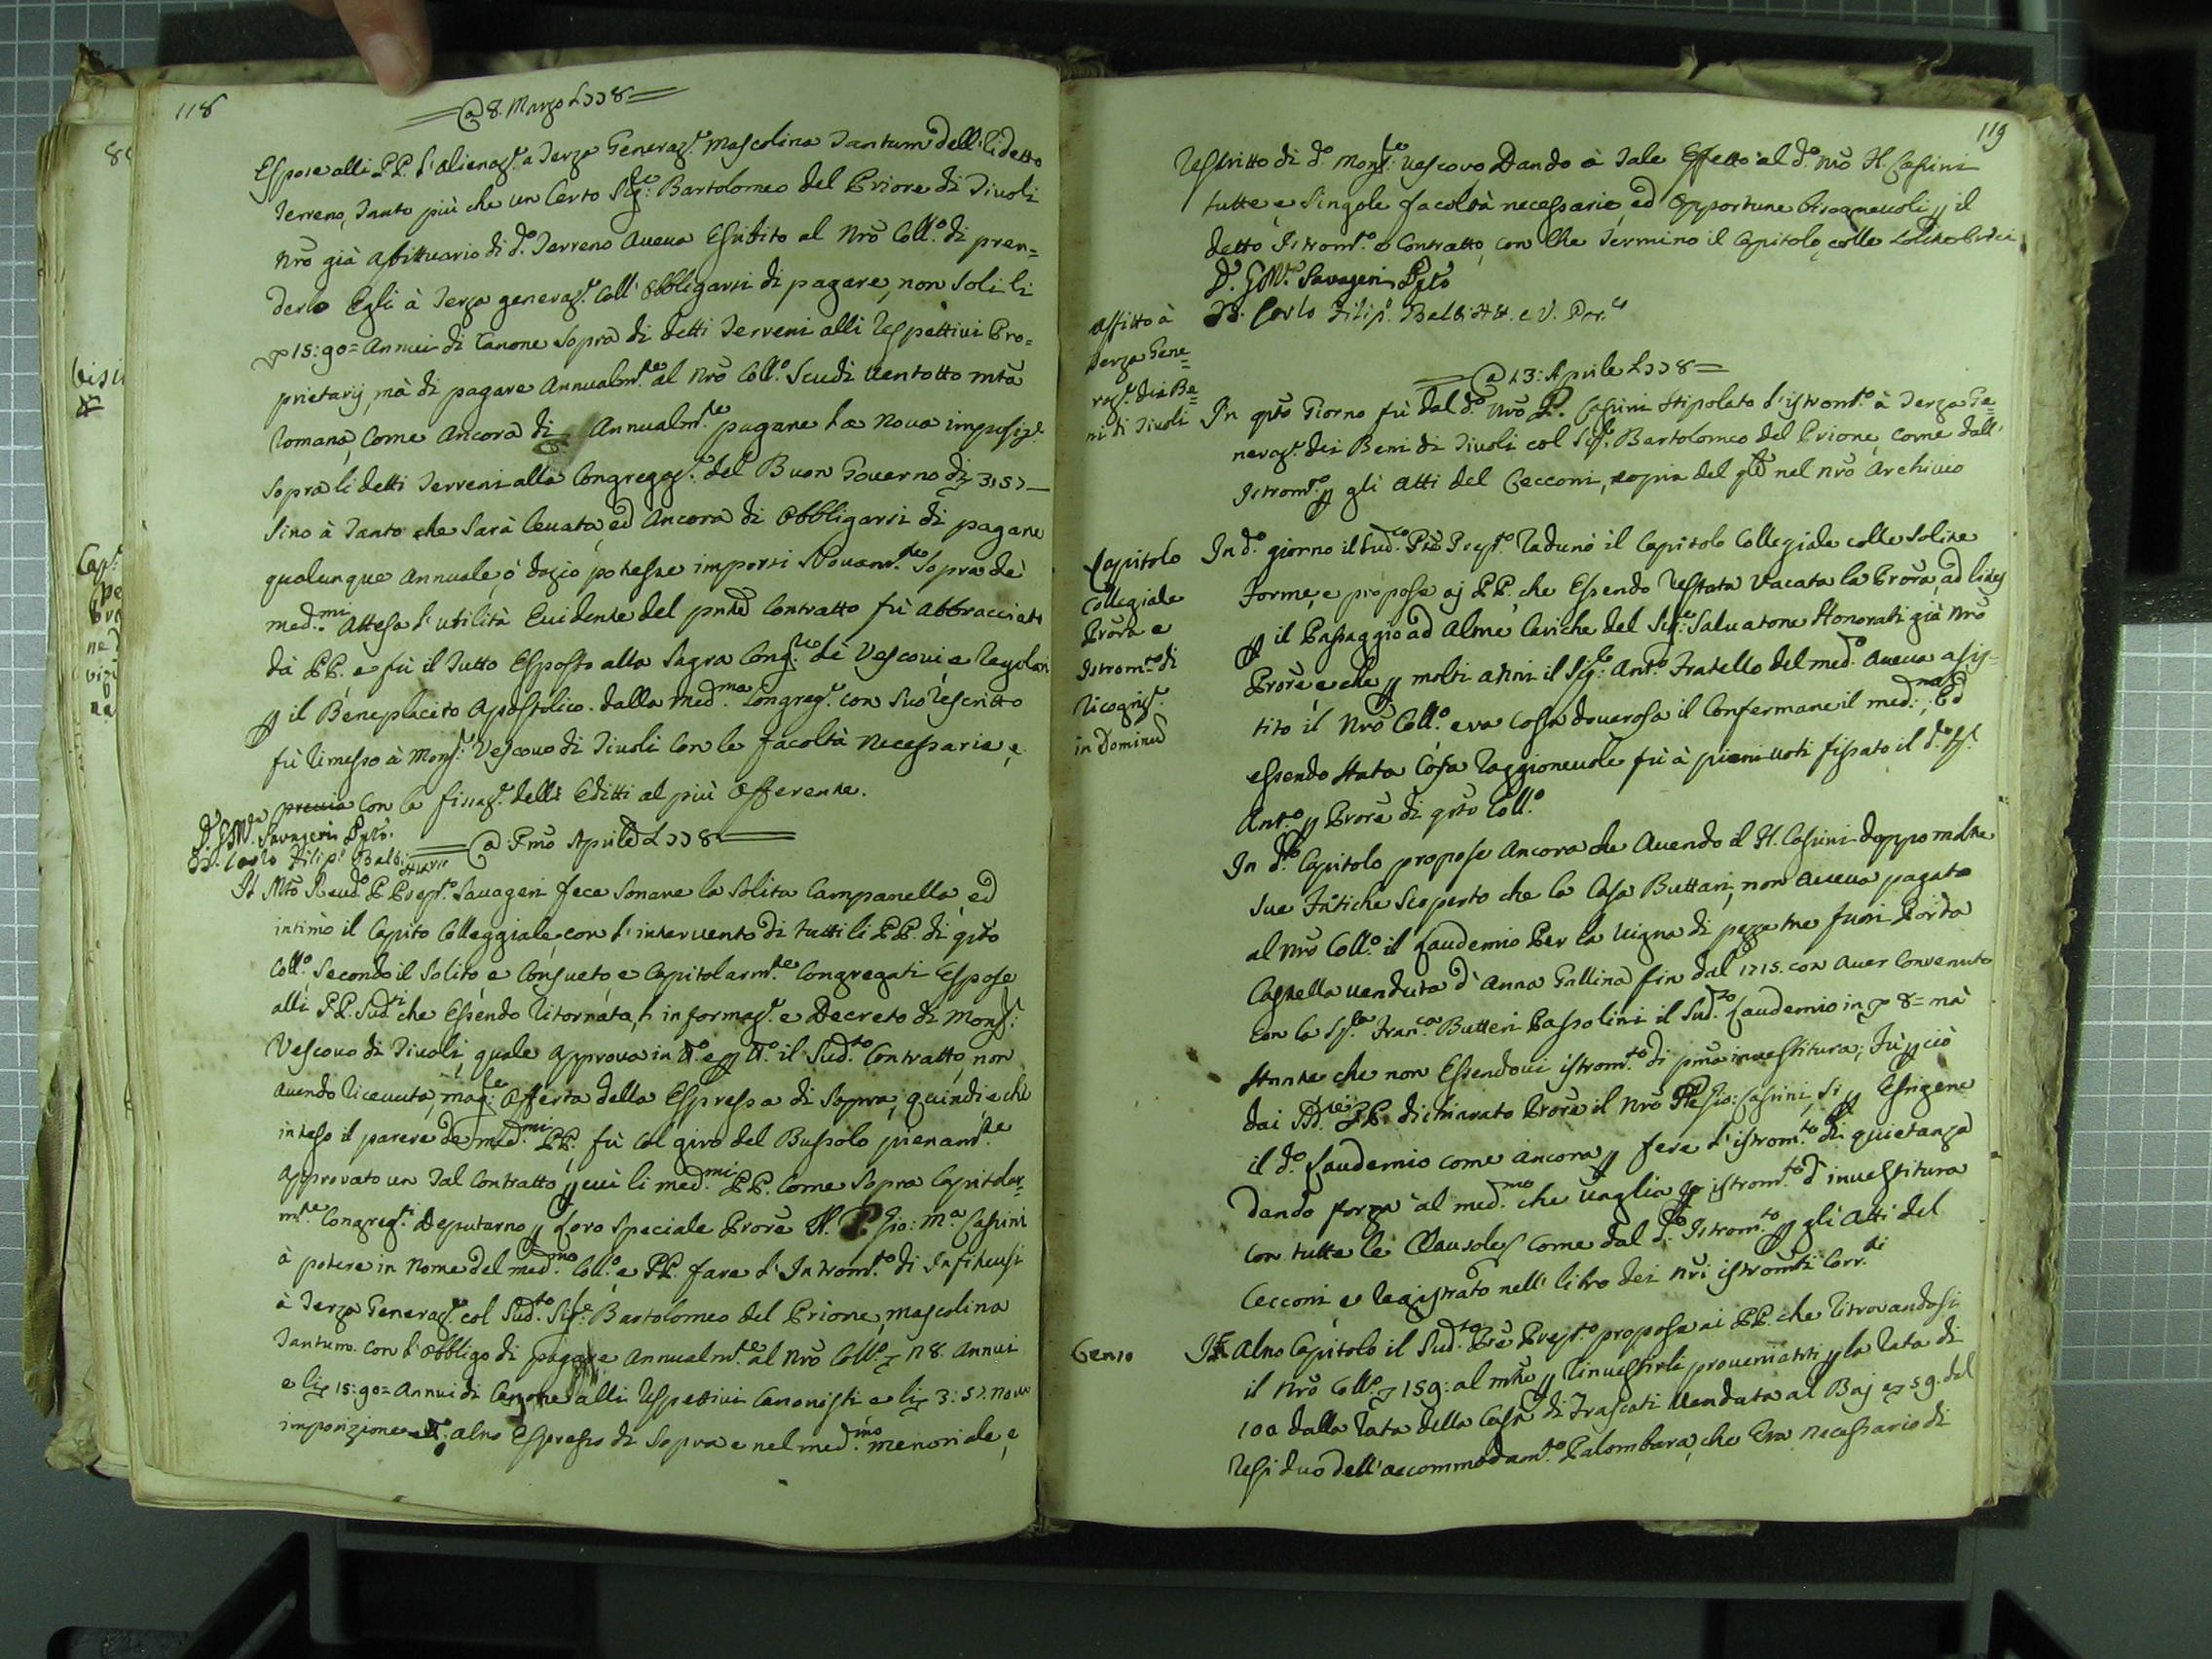 118
@ 8. Marzo 1778
Espose alli PP. l'alienaz.e a Terza Generaz.e Mascolina Tantum dell'lidetto
Terreno, Tanto più che un Certo Sig.re Bartolomeo del Priore di Tivoli
Nrõ già Affittuario di d.o Terreno Aveva Esibito al Nrõ Coll.o di pren=
derlo Egli à Terza generaz.e coll'Obbligarsi di pagare, non soli li
15:90= Annui di Canone sopra di detti Terreni alli Respettivi Pro=
prietarij, mà di pagare Annualm.te al Nrõ Coll.o Scudi ventotto mtã
Romana, Come Ancora di Annualm.te pagare La Nova imposiz.e
sopra li detti Terreni alla Congregaz.e del Buon Governo di 3:57
sino à Tanto che sarà levata, ed Ancora di Obbligarsi di pagare
qualunque Annuale, ò dazio potesse imporsi Novam.te sopra de'
med.mi Attesa l'utilità Evidente del pntẽ Contratto fù Abbracciato
dà PP. e fù il Tutto Esposto alla Sagra Cong.ne dè Vescovi e Regolari
p il Beneplacito Apostolico. dalla med.ma Congreg.e con suo rescritto
fù rimesso à Mons.r Vescovo di Tivoli Con le facoltà Necessarie, e
previa con la fissaz.e delli Editti al più Offerente.
D. G. M.a Savageri Ppto.
D. Carlo Filip.o Balbi Attuario
@ Pmo Aprile 1778
Il Mtõ Revd.o P. Prept.o Savageri fece sonare la solita Campanella, ed
intimò il Capito Colleggiale con l'intervento di tutti li PP. di qstõ
Coll.o, secondo il Solito, e Consueto, e Capitolarm.te Congregati Espose
alli PP. Sud.ti che Essendo ritornata, l'informaz.e e Decreto di Mons.r
Vescovo di Tivoli, quale Approva in t.o e p t.o il Sud.to Contratto, non
avendo ricevuta, mag.re Offerta della Espressa di Sopra, quindi e che
inteso il parere de med.mi PP. fù col giro del Bussolo pienam.te
Approvato un Tal Contratto, p cui li med.mi PP. Come sopra Capitolar=
m.te Congreg.ti Deputarno p Loro speciale Prorẽ Il P. Gio: M.a Casini
à potere in Nome del med.mo Coll.o e PP. fare l'Instrom.to di Enfiteusi
à Terza Generaz.e col Sud.to Sig.re Bartolomeo del Priore, mascolina
Tantum. con l'Obbligo di pagare Annualm.te al Nrõ Coll.o 28. Annui
e li 15:90= Annui di Canone alli Respettivi Canonisti e li 3:57. nova
imposizione et alrõ Espresso di sopra e nel med.mo memoriale, e
119
Rescritto di d.o Mons.re Vescovo Dando à Tale Effetto al d.o Nrõ Il Casini
tutte, e Singole facoltà necessarie, ed Opportune bisognevoli p il
detto Istrom.to o Contratto, con che Terminò il Capitolo, colle solite Preci
D. G. M.a Savageri Ppto
D. Carlo Filip.o Balbi Att. e V. Pre.to
Affitto à
Terza Gene=
raz.e dei Be=
ni di Tivoli
@ 13: Aprile 1778
In qstõ Giorno fù dal d.o Nrõ P. Casini Stipolato l'istrom.to à Terza Ge=
neraz.e dei Beni di Tivoli col Sig.re Bartolomeo del Priore, come dall'
Istrom.to p gli Atti del Cecconi, copia del qlẽ nel Nrõ Archivio
Capitolo
Collegiale
Prora e
Istrom.to di
Ricogniz.e
in Dominũ
In d.o giorno il Sud.to Prẽ Prept.o Radunò il Capitolo Collegiale colle solite
Forme, e propose aj PP. che Essendo restata Vacata la Prora, ad lites
p il Passaggio ad Altre Cariche del Sig.re Salvatore Honorati già Nrõ
Prorẽ e che p molti anni il Sig.re Ant.o Fratello del med.o Aveva assis=
tito il Nrõ Coll.o era Cosa doverosa il Confermare il med.mo; Ed
essendo stata Cosa raggionevole fù à pieni voti fissato il d.o Sig.
Ant.o p Prorẽ di qstõ Coll.o
In d.to Capitolo propose Ancora che Avendo il Il Casini doppo molte
sue Fatiche scoperto che la Casa Buttari, non Aveva pagato
al Nrõ Coll.o il Laudemio Per la Vigna di pezze tre fuori Porta
Castella venduta d'Anna Gallina fin dal 1715. con Aver Convenuto
con la Sig.a Fran.ca Butteri Passolini il Sud.to Laudemio in 8= mà
stante che non Essendovi istrom.to di pma investitura; Fù p ciò
dai Sud.i PP. dichiarato Prorẽ il Nrõ Prẽ Gio: Casini, si p Esigere
il d.o Laudemio come Ancora p fare l'istrom.to di quietanza
Dando forza al med.mo che vaglia p istrom.to d'investitura
con tutte le Clausole, come dal d.o Istrom.to p gli Atti del
Cecconi e Registrato nell'libro dei Nri istromti Corr.ti
Censo
In Altro Capitolo il Sud.to Prẽ Prept.o propose ai PP. che ritrovandosi
il Nrõ Coll.o 159: al mtẽ p rinvestirli provenienti p la rata di
100 dalla rata della Casa di Frascati Venduta al Baj e 59. del
Residuo dell'accommodam.to Palombara, che Era necessario di